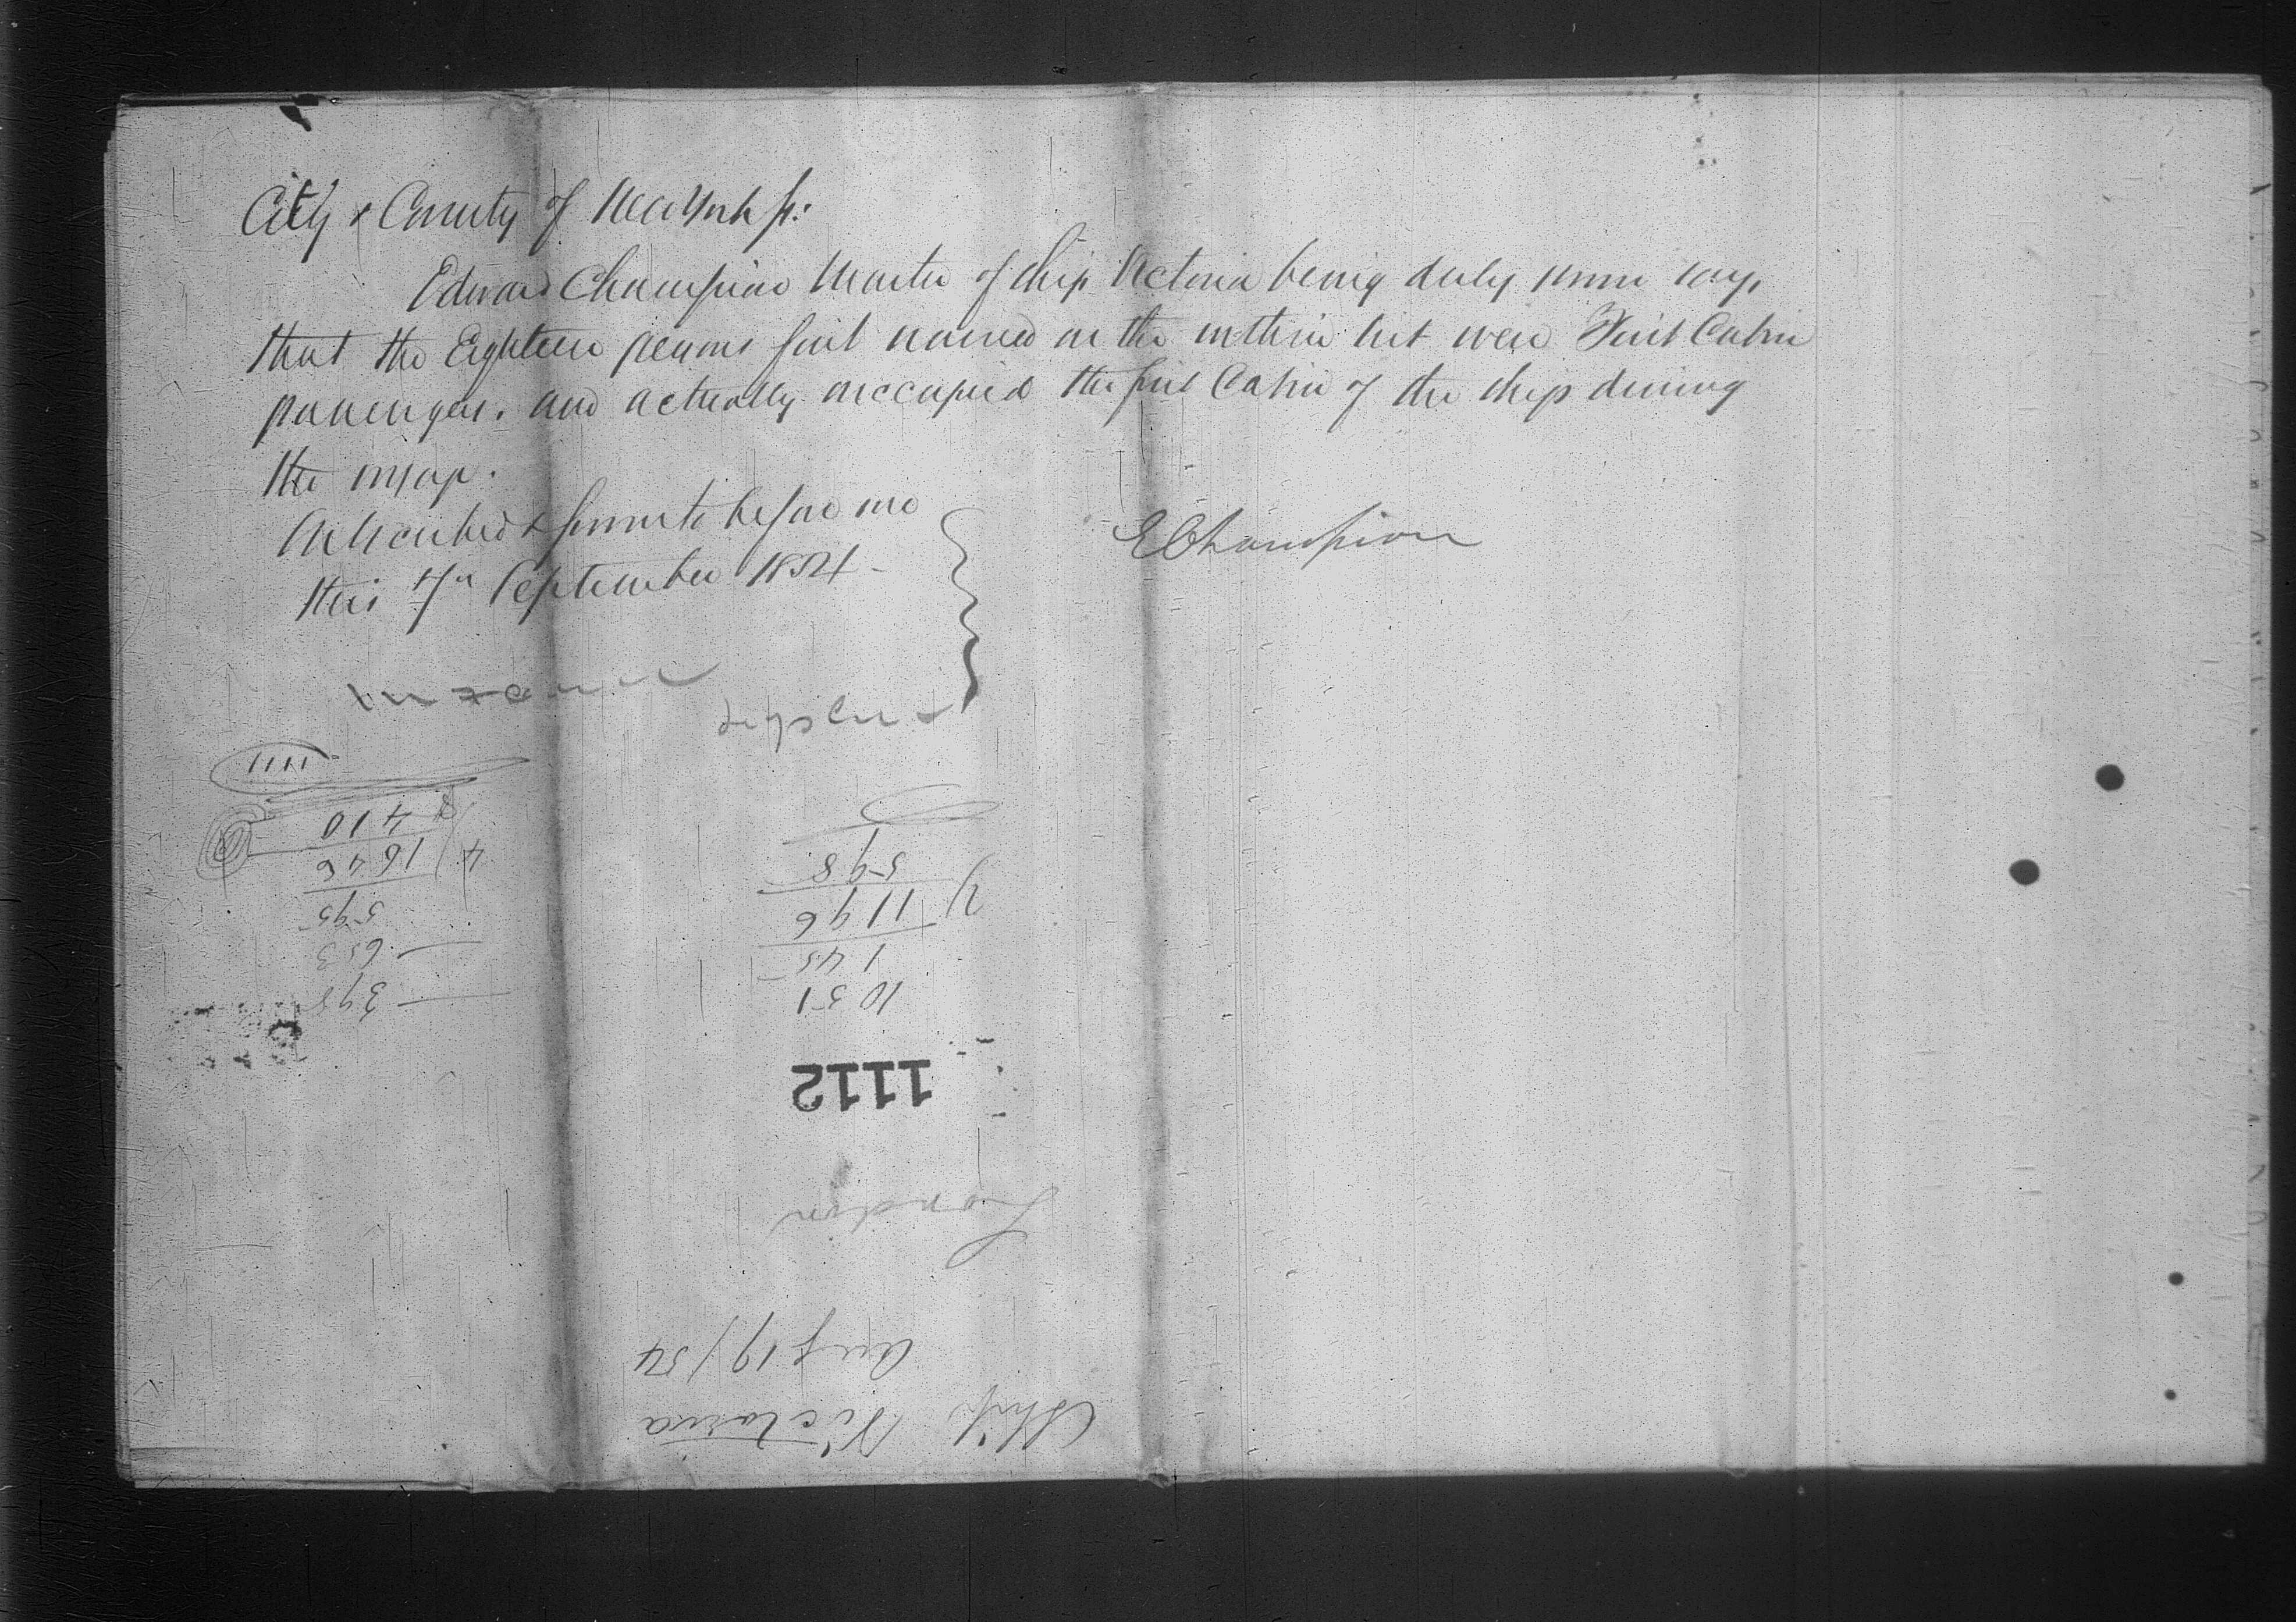 City & County of New York ss:
Edward Champion Master of ship Victoria being duly sworn says,
that the Eighteen persons first named on the within list were First Cabin
passengers. and actually occupied the first Cabin of the ship during
the voyage.
Subscribed & sworn to before me
this 7th September 1854
EChampion
1111
410
4) 1646
595
653
398
598
2) 1196
145
1051
1112
London
Aug 19/54
Ship Victoria